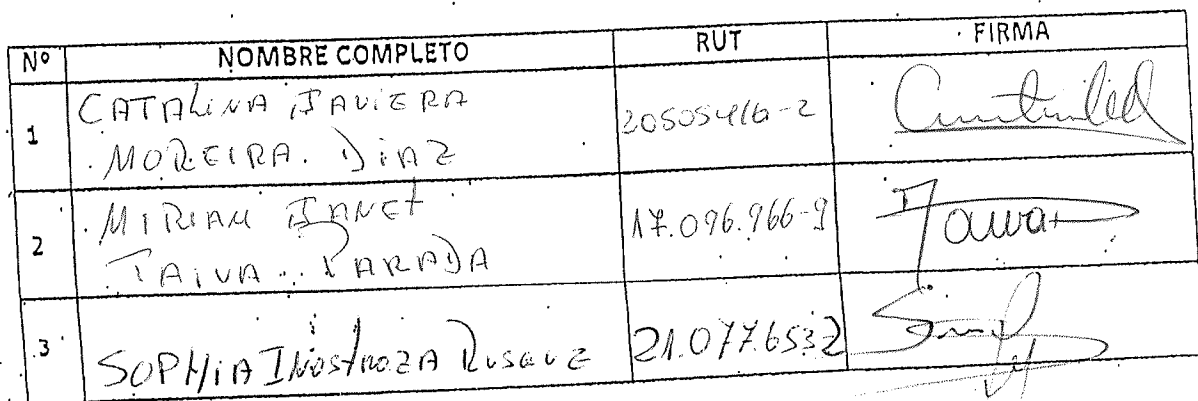 Nº NOMBRE COMPLETO RUT FIRMA
1 CATALINA JAVIERA
MOREIRA. DiAZ 20505416-2
2 MIRIAM JANET
PARADA 17.096.966-9
3 SOPHiA INOSTROZA 21.077.653-2